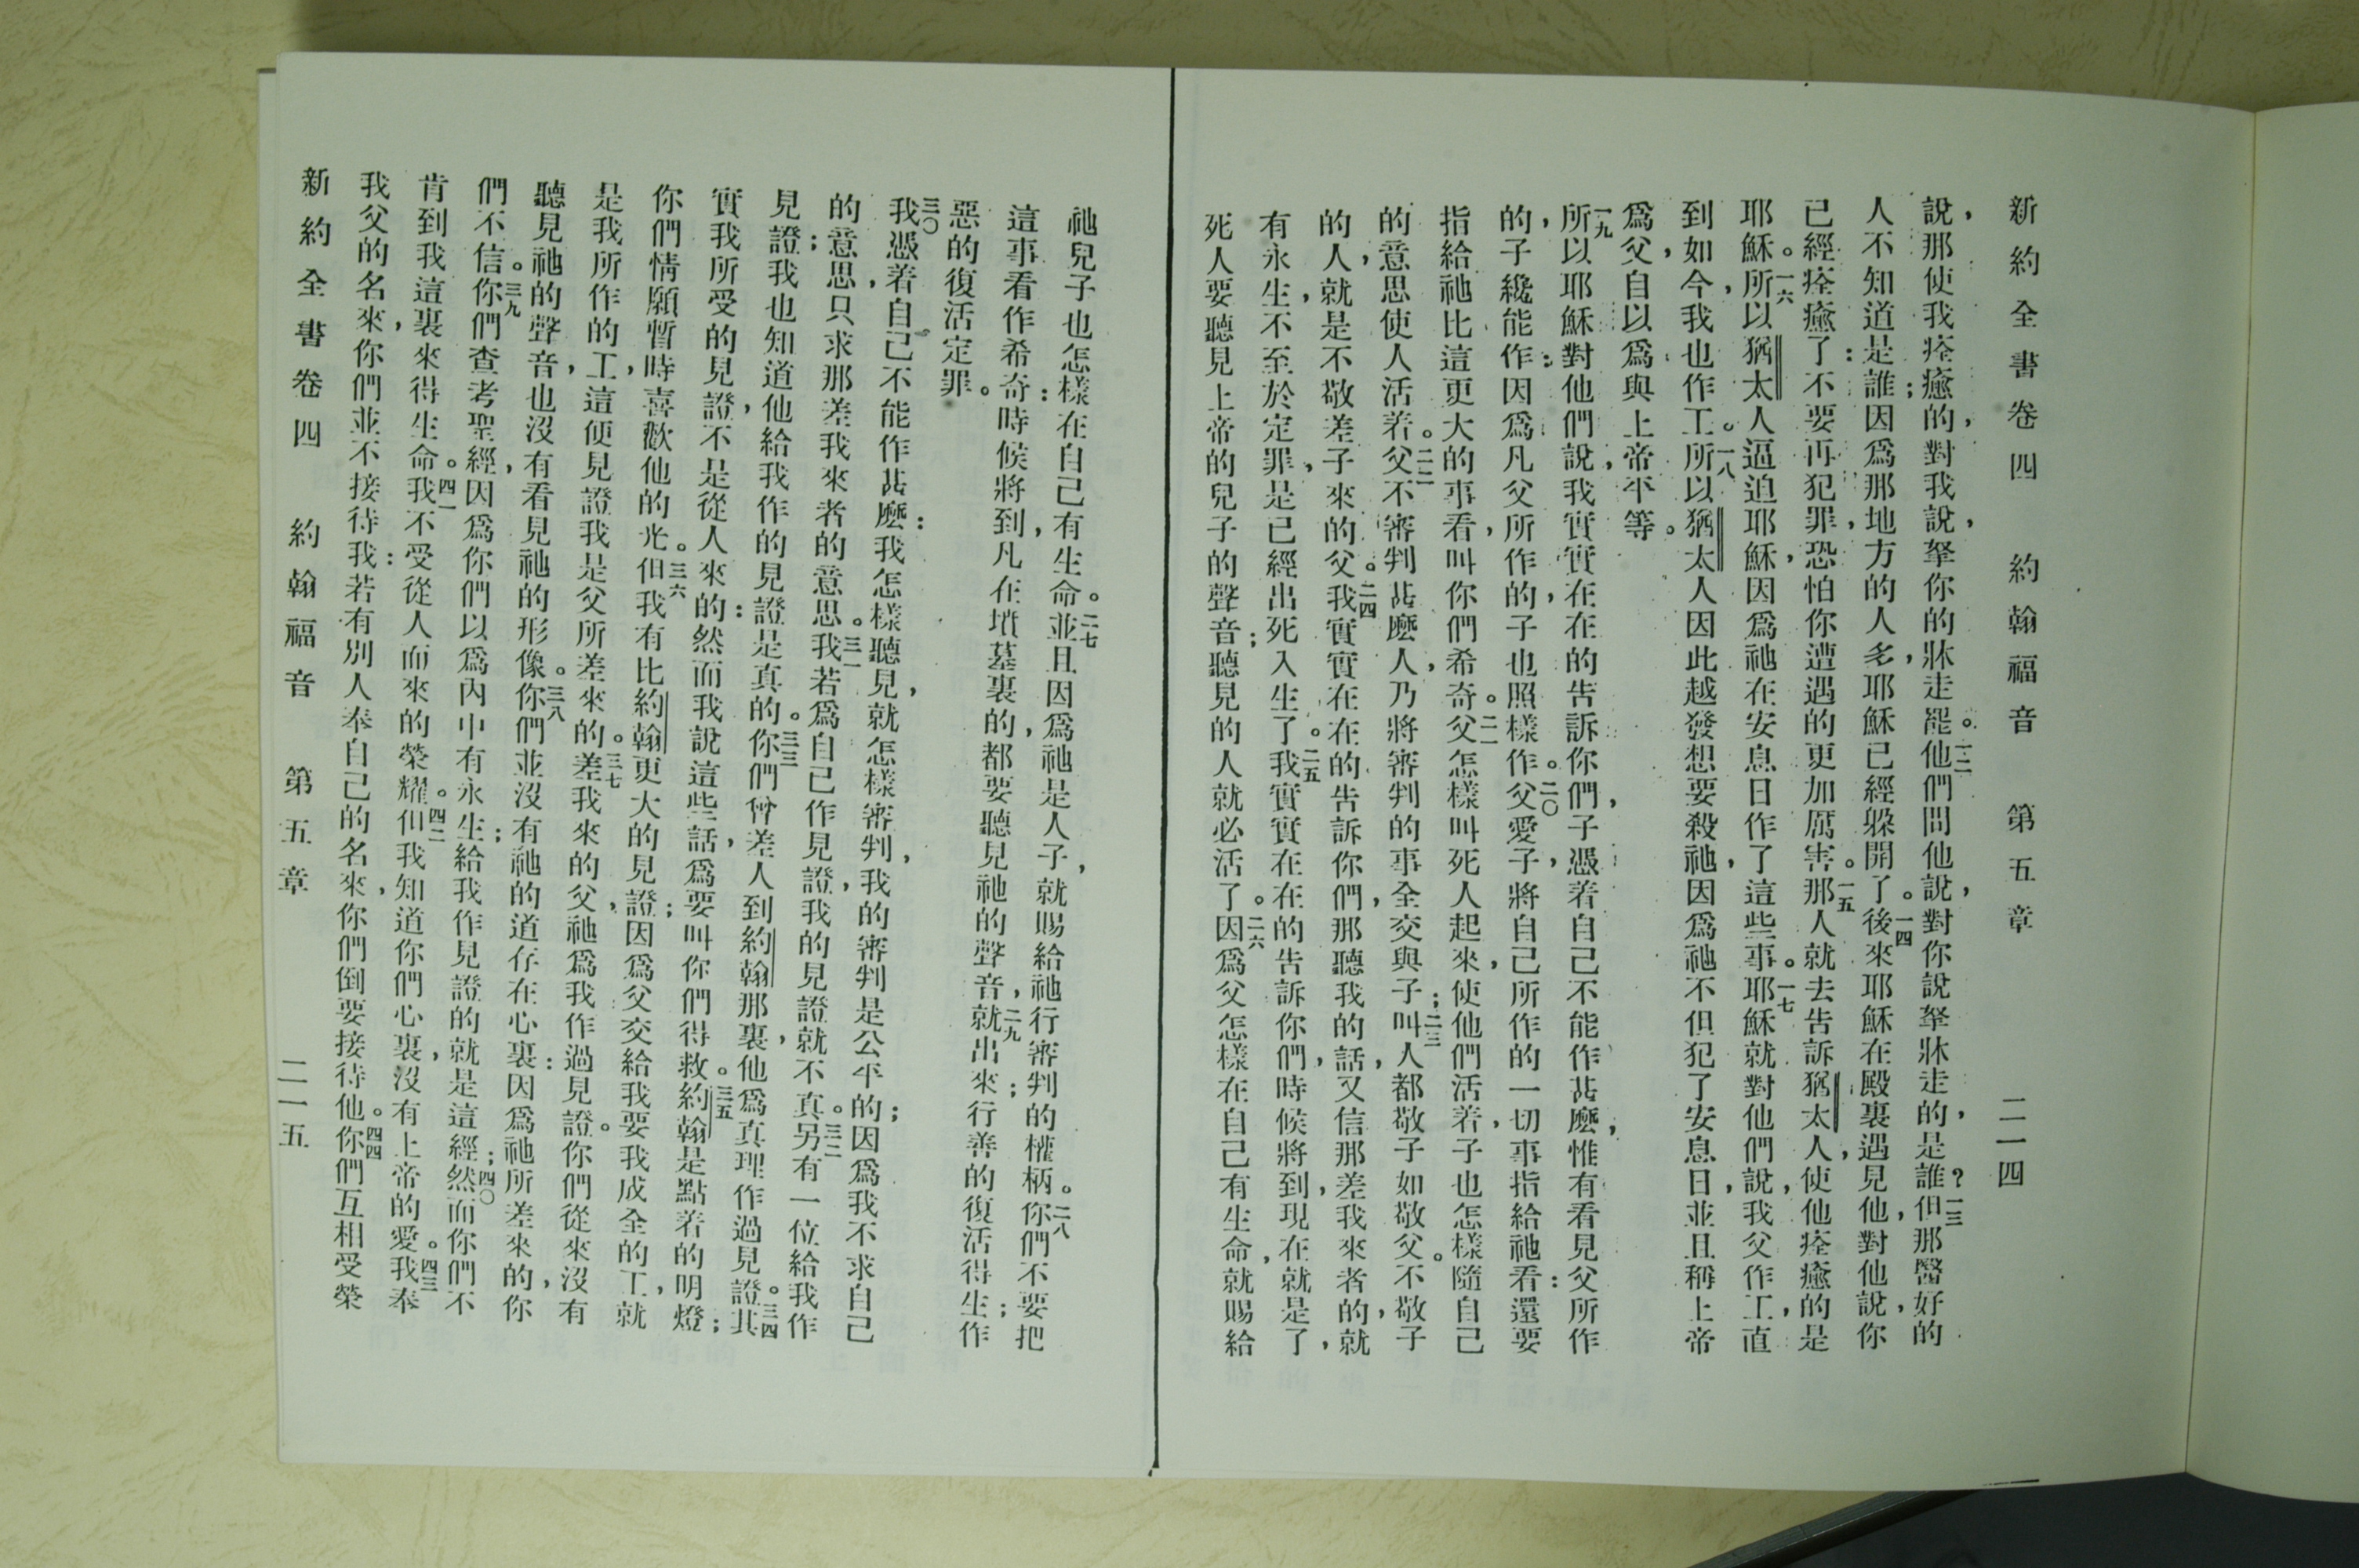 新約全書卷四　約翰福音　第五章　二一四
說，那使我痊癒的，對我說，拏你的牀走罷。一二他們問他說，對你說拏牀走的，是誰？一三但那醫好的
人不知道是誰；因爲那地方的人多，耶穌已經躱開了。一四後來耶穌在殿裏遇見他，對他說，你
已經痊癒了：不要再犯罪，恐怕你遭遇的更加厲害。一五那人就去告訴猶太人，使他痊癒的是
耶穌。一六所以猶太人逼迫耶穌，因爲祂在安息日作了這些事。一七耶穌就對他們說，我父作工，直
到如今，我也作工。一八所以猶太人因此越發想要殺祂，因爲祂不但犯了安息日，並且稱上帝
爲父，自以爲與上帝平等。
一九所以耶穌對他們說，我實實在在的告訴你們，子憑着自己不能作甚麽，惟有看見父所作
的，子纔能作：因爲凡父所作的，子也照樣作。二〇父愛子，將自己所作的一切事指給祂看：還要
指給祂比這更大的事看，叫你們希奇。二一父怎樣叫死人起來，使他們活着，子也怎樣隨自己
的意思使人活着。二二父不審判甚麽人，乃將審判的事全交與子；二三叫人都敬子如敬父。不敬子
的人，就是不敬差子來的父。二四我實實在在的告訴你們，那聽我的話，又信那差我來者的，就
有永生，不至於定罪，是已經出死入生了。二五我實實在在的告訴你們，時候將到，現在就是了，
死人要聽見上帝的兒子的聲音；聽見的人就必活了。二六因爲父怎樣在自己有生命，就賜給
祂兒子也怎樣：在自己有生命。二七並且因爲祂是人子，就賜給祂行審判的權柄。二八你們不要把
這事看作希奇：時候將到，凡在墳墓裏的，都要聽見祂的聲音，二九就出來；行善的復活得生；作
惡的復活定罪。
三〇我憑着自己不能作甚麽：我怎樣聽見，就怎樣審判，我的審判是公平的；因爲我不求自己
的意思，只求那差我來者的意思。三一我若爲自己作見證，我的見證就不真。三二另有一位給我作
見證；我也知道他給我作的見證是真的。三三你們曾差人到約翰那裏，他爲真理作過見證。三四其
實我所受的見證，不是從人來的：然而我說這些話，爲要叫你們得救。三五約翰是點着的明燈；
你們情願暫時喜歡他的光。三六但我有比約翰更大的見證；因爲父交給我要我成全的工，就
是我所作的工，這便見證我是父所差來的。三七差我來的父，祂爲我作過見證。你們從來沒有
聽見祂的聲音，也沒有看見祂的形像。三八你們並沒有祂的道存在心裏：因爲祂所差來的，你
們不信。三九你們查考聖經，因爲你們以爲內中有永生；給我作見證的就是這經；四〇然而你們不
肯到我這裏來得生命。四一我不受從人而來的榮耀。四二但我知道你們心裏，沒有上帝的愛。四三我奉
我父的名來，你們並不接待我：若有別人奉自己的名來，你們倒要接待他。四四你們互相受榮
新約全書卷四　約翰福音　第五章　二一五